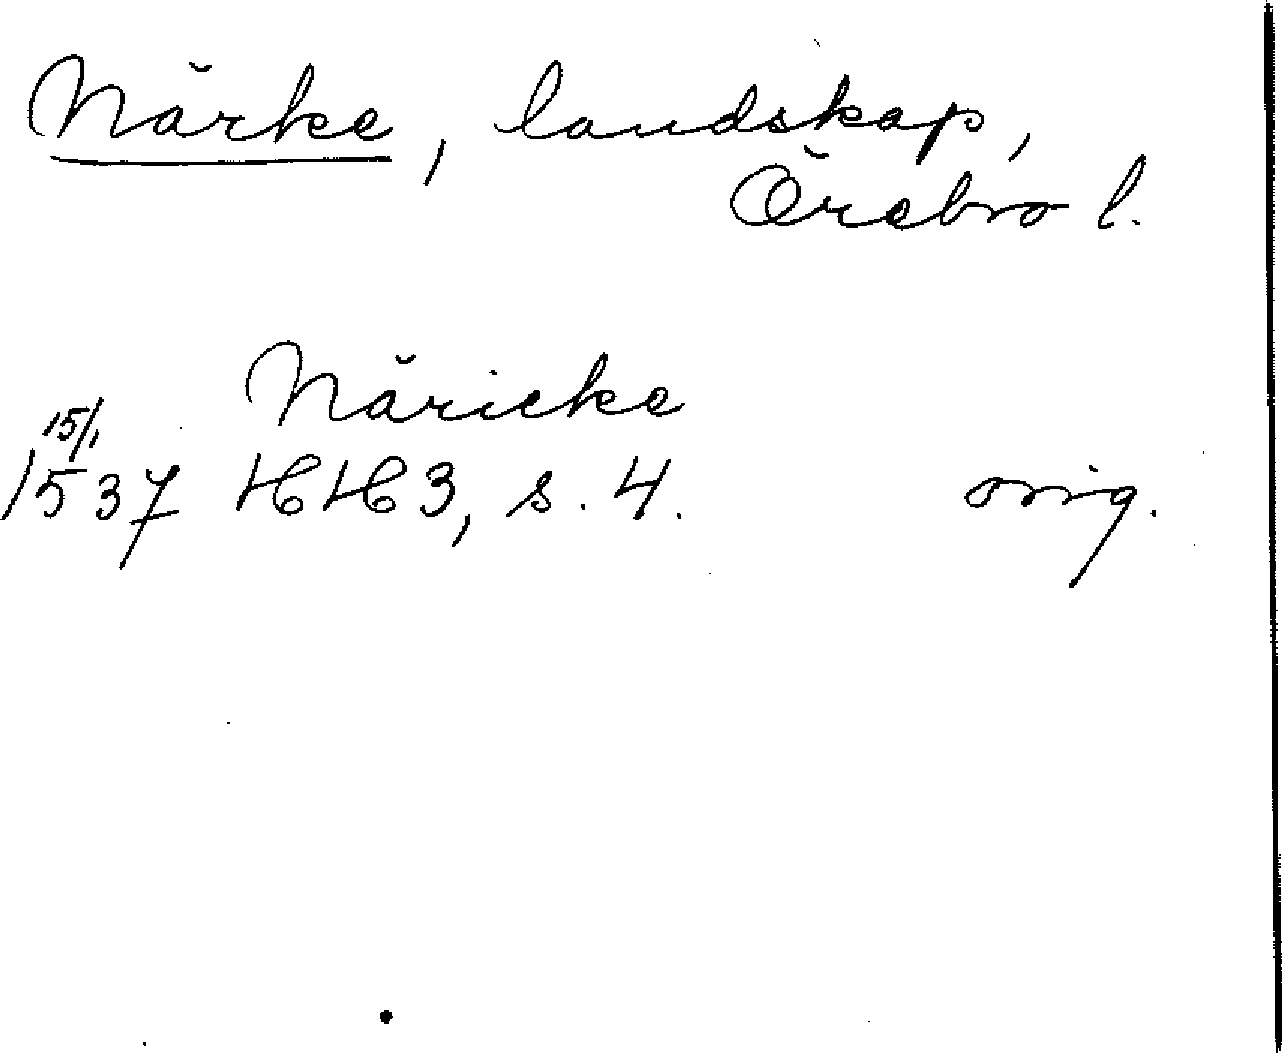 Närke, landskap,
Örebro l.
Näricke
15/1
1537 HH 3, s. 4. orig.